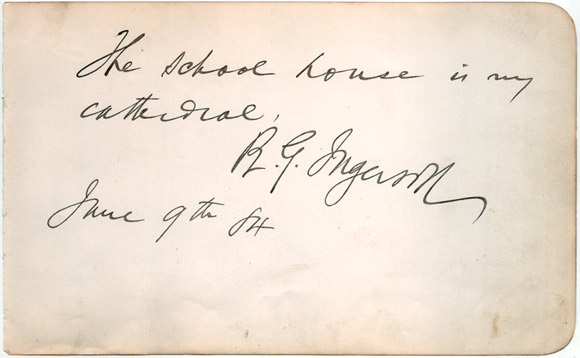 The school house is my
cathedral.
R. G. Ingersoll
June 9th 84